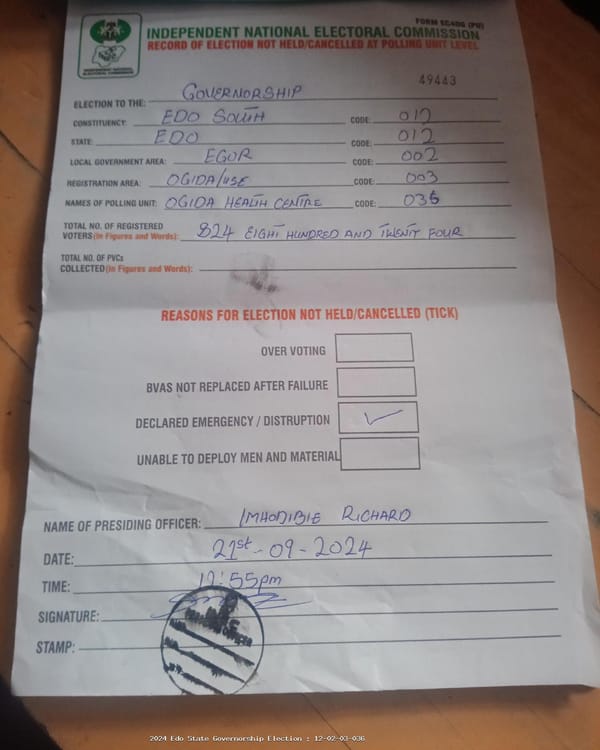 FORM EC40G (PU)
INDEPENDENT NATIONAL ELECTORAL COMMISSION
RECORD OF ELECTION NOT HELD/CANCELLED AT POLLING UNIT LEVEL
INDEPENDENT NATIONAL
ELECTORAL COMMISSION
49443
ELECTION TO THE: GOVERNORSHIP
CONSTITUENCY: EDO SOUTH CODE: 012
STATE: EDO CODE: 012
LOCAL GOVERNMENT AREA: EGOR CODE: 002
REGISTRATION AREA: OGIDA/USE CODE: 003
NAMES OF POLLING UNIT: OGIDA HEALTH CENTRE CODE: 036
TOTAL NO. OF REGISTERED
VOTERS (In Figures and Words): 824 EIGHT HUNDRED AND TWENTY FOUR
TOTAL NO. OF PVCs
COLLECTED (In Figures and Words):
REASONS FOR ELECTION NOT HELD/CANCELLED (TICK)
OVER VOTING
BVAS NOT REPLACED AFTER FAILURE
DECLARED EMERGENCY / DISTRUPTION
UNABLE TO DEPLOY MEN AND MATERIAL
NAME OF PRESIDING OFFICER: IMHODIBIE RICHARD
DATE: 21st-09-2024
TIME: 12:55pm
SIGNATURE:
STAMP:
2024 Edo State Governorship Election : 12-02-03-036